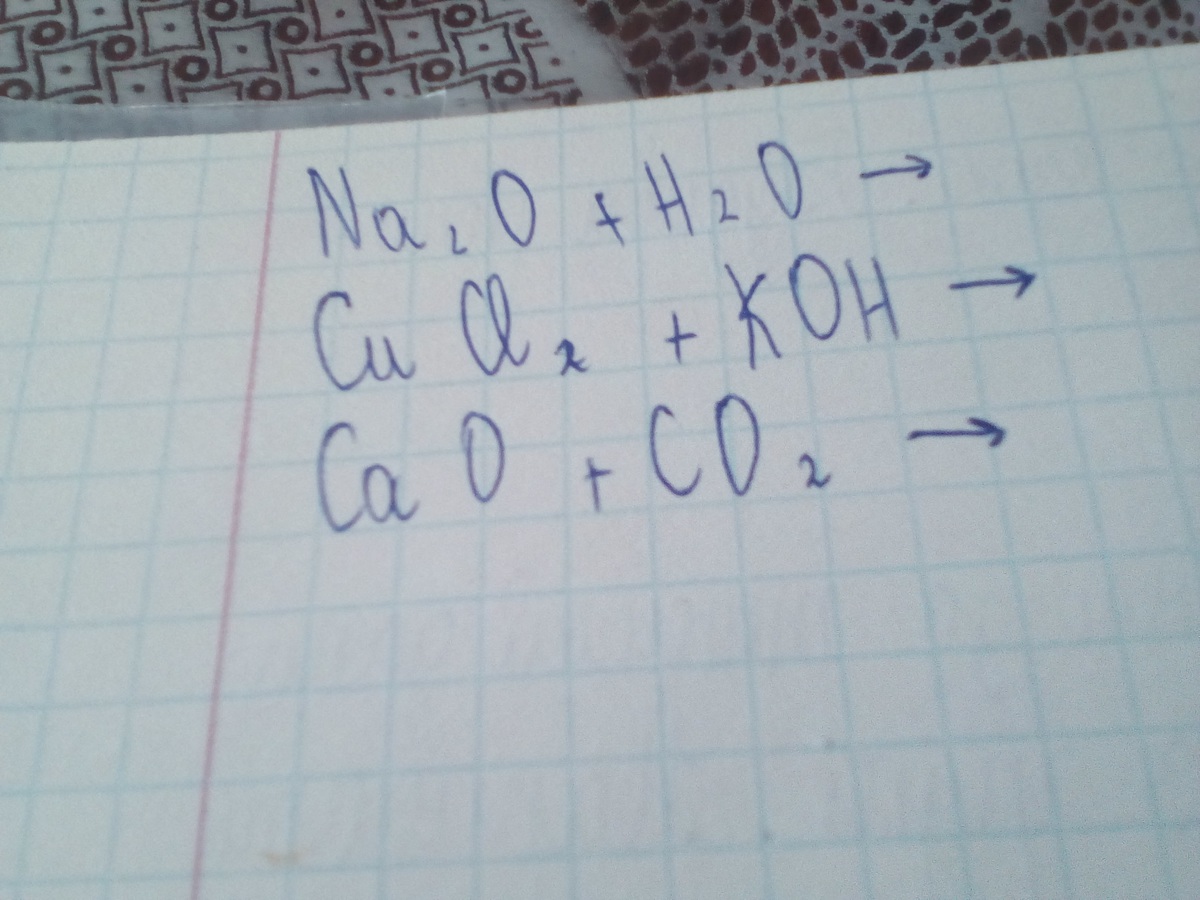 Na₂O + H₂O →
CuCl₂ + KOH →
CaO + CO₂ →